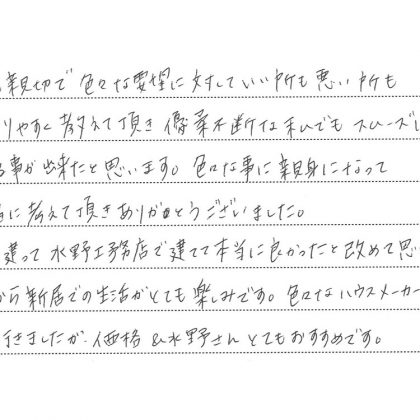 親切で色々な要望に対していい所も悪い所も
りやすく教えて頂き優柔不断な私でもスムーズに
事が出来たと思います。色々な事に親身になって
に考えて頂きありがとうございました。
建って水野工務店で建てて本当に良かったと改めて思
から新居での生活がとても楽しみです。色々なハウスメーカー
行きましたが、価格&水野さんとてもおすすめです。